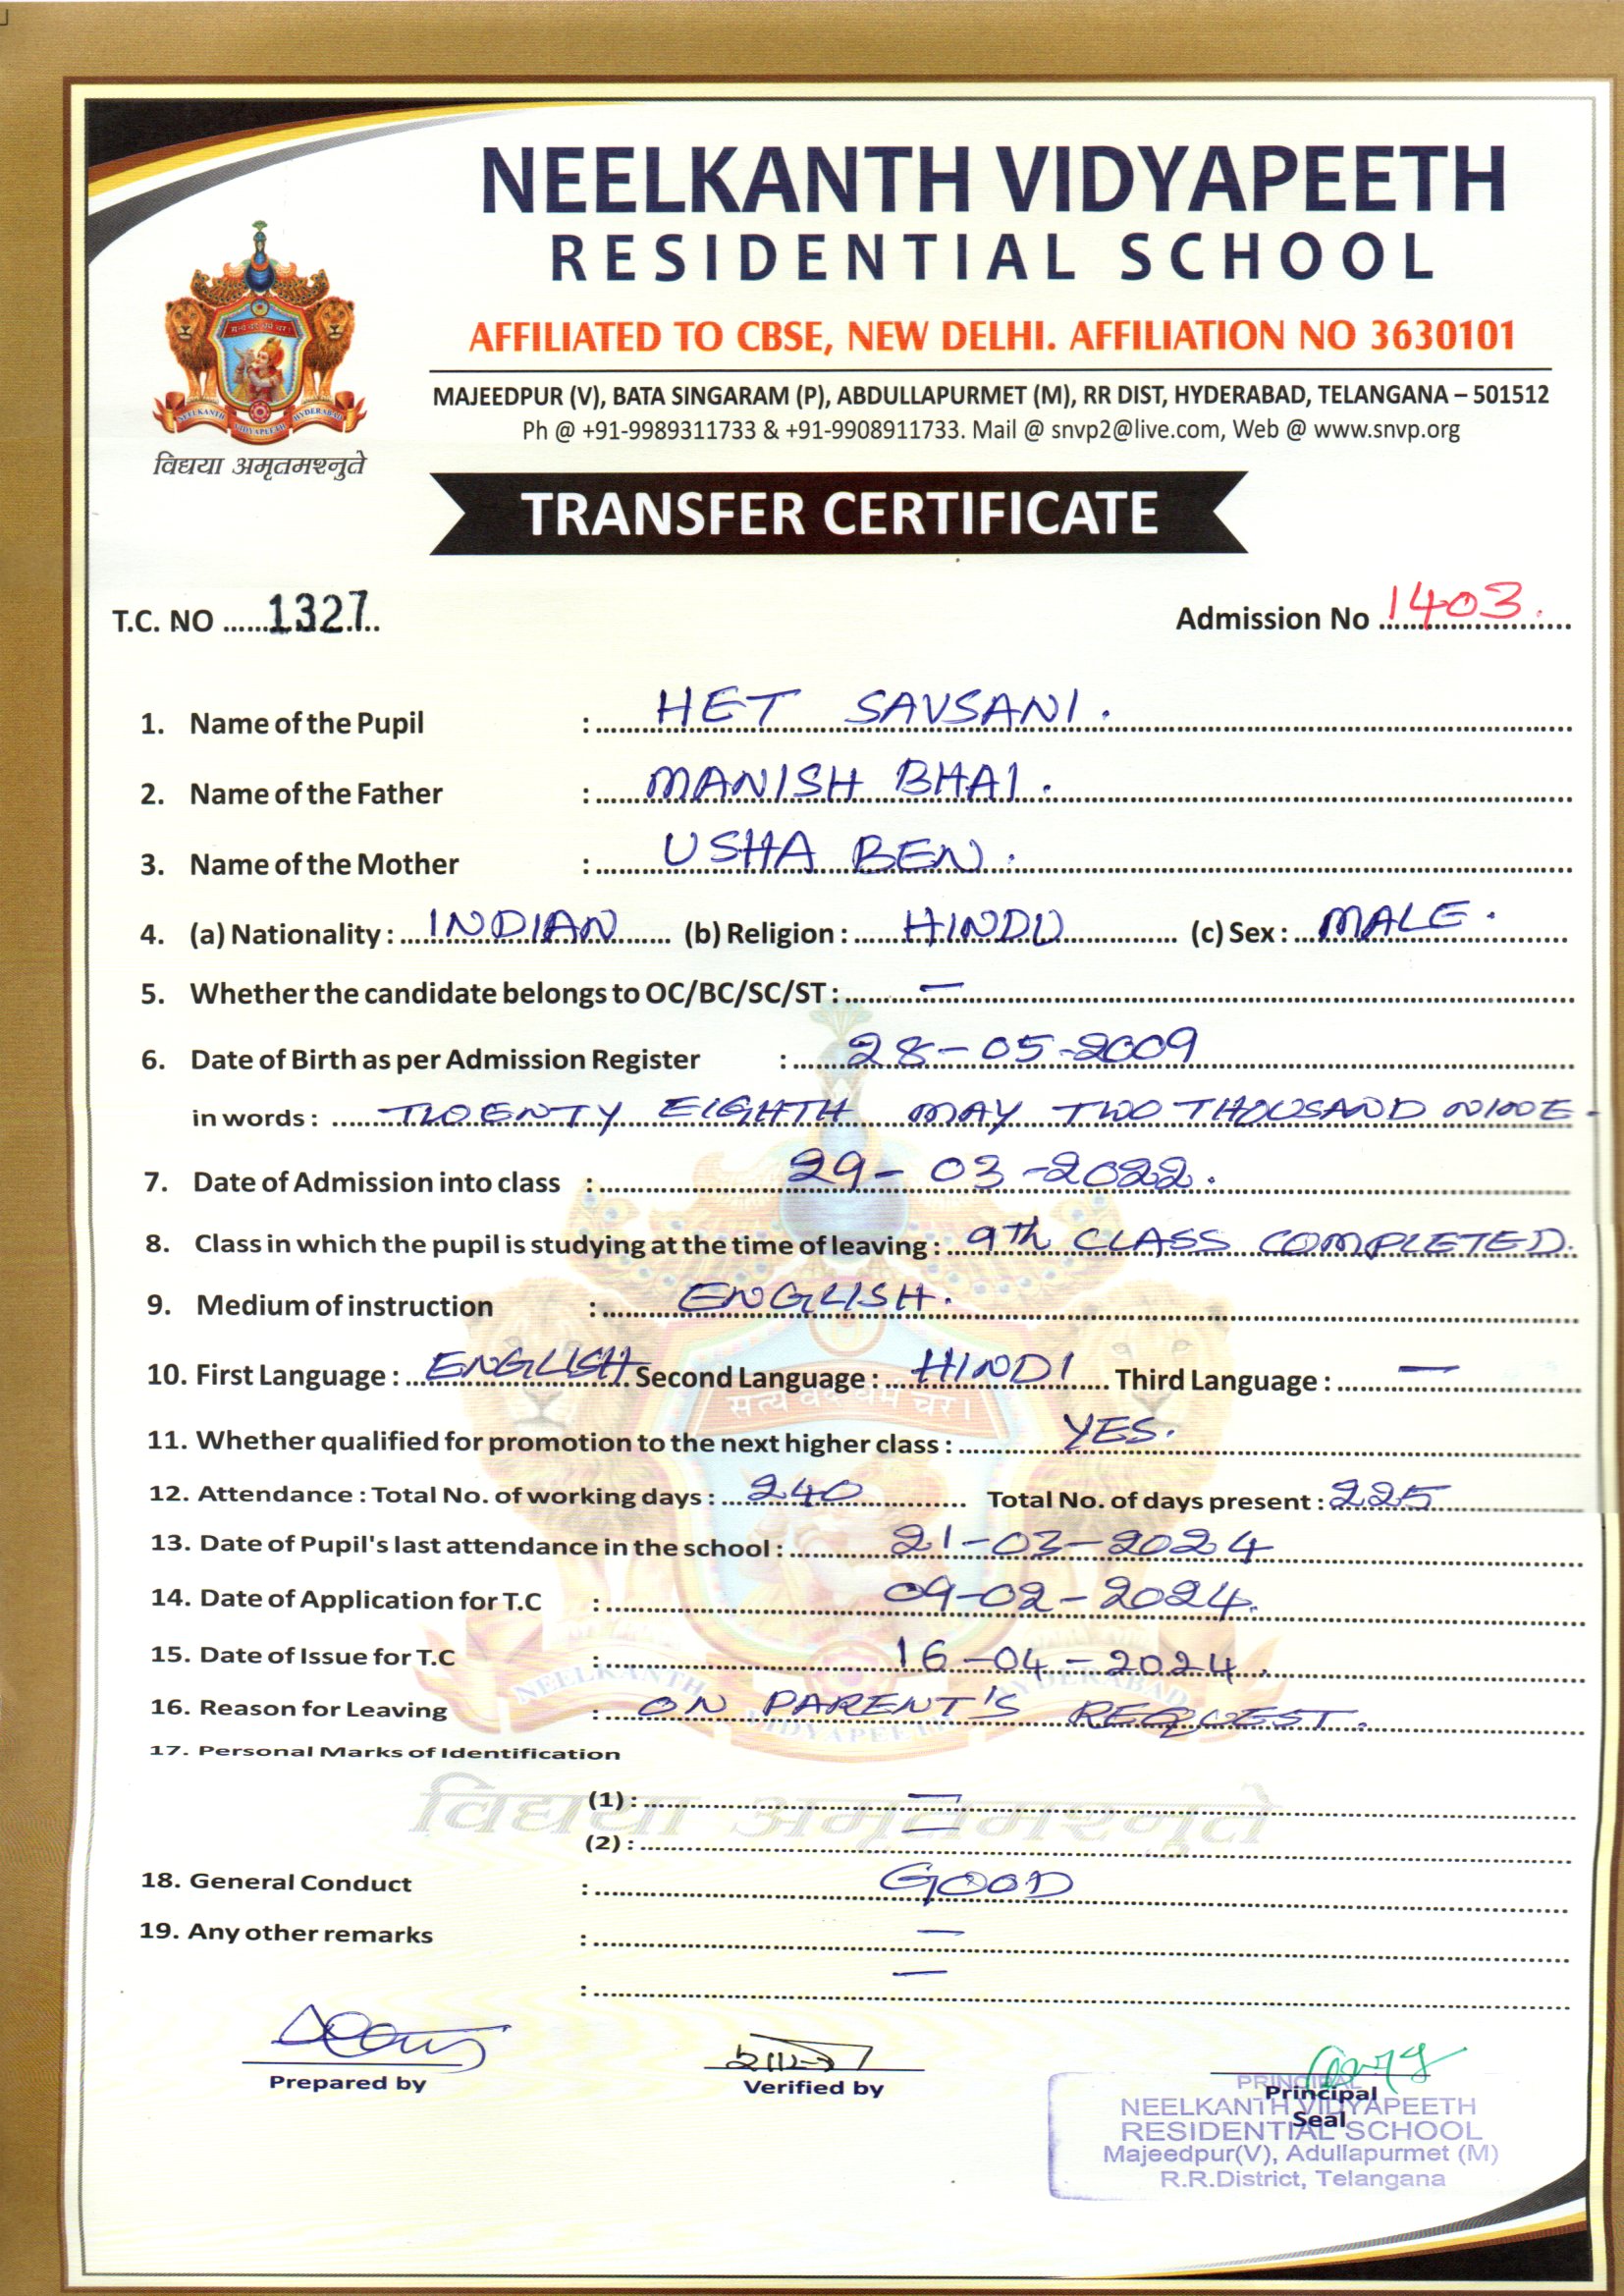 NEELKANTH VIDYAPEETH
RESIDENTIAL SCHOOL
AFFILIATED TO CBSE, NEW DELHI. AFFILIATION NO 3630101
MAJEEDPUR (V), BATA SINGARAM (P), ABDULLAPURMET (M), RR DIST, HYDERABAD, TELANGANA – 501512
Ph @ +91-9989311733 & +91-9908911733. Mail @ snvp2@live.com, Web @ www.snvp.org
सत्यं वद धर्मं चर।
NEELKANTH VIDYAPEETH HYDERABAD
विद्यया अमृतमश्नुते
TRANSFER CERTIFICATE
T.C. NO ......1327. Admission No 1403.
1. Name of the Pupil : HET SAVSANI.
2. Name of the Father : MANISH BHAI.
3. Name of the Mother : USHA BEN.
4. (a) Nationality : INDIAN (b) Religion : HINDU (c) Sex : MALE.
5. Whether the candidate belongs to OC/BC/SC/ST : —
6. Date of Birth as per Admission Register : 28-05-2009
in words : TWENTY EIGHTH MAY TWO THOUSAND NINE-
7. Date of Admission into class : 29-03-2022.
8. Class in which the pupil is studying at the time of leaving : 9th CLASS COMPLETED.
9. Medium of instruction : ENGLISH.
10. First Language : ENGLISH Second Language : HINDI Third Language : —
11. Whether qualified for promotion to the next higher class : YES.
12. Attendance : Total No. of working days : 240 Total No. of days present : 225
13. Date of Pupil's last attendance in the school : 21-03-2024
14. Date of Application for T.C : 09-02-2024.
15. Date of Issue for T.C : 16-04-2024.
16. Reason for Leaving : ON PARENT'S REQUEST.
17. Personal Marks of Identification
(1) : —
(2) : —
विद्यया अमृतमश्नुते
18. General Conduct : GOOD
19. Any other remarks : —
: —
Prepared by Verified by Principal
Seal
PRINCIPAL
NEELKANTH VIDYAPEETH
RESIDENTIAL SCHOOL
Majeedpur(V), Adullapurmet (M)
R.R.District, Telangana